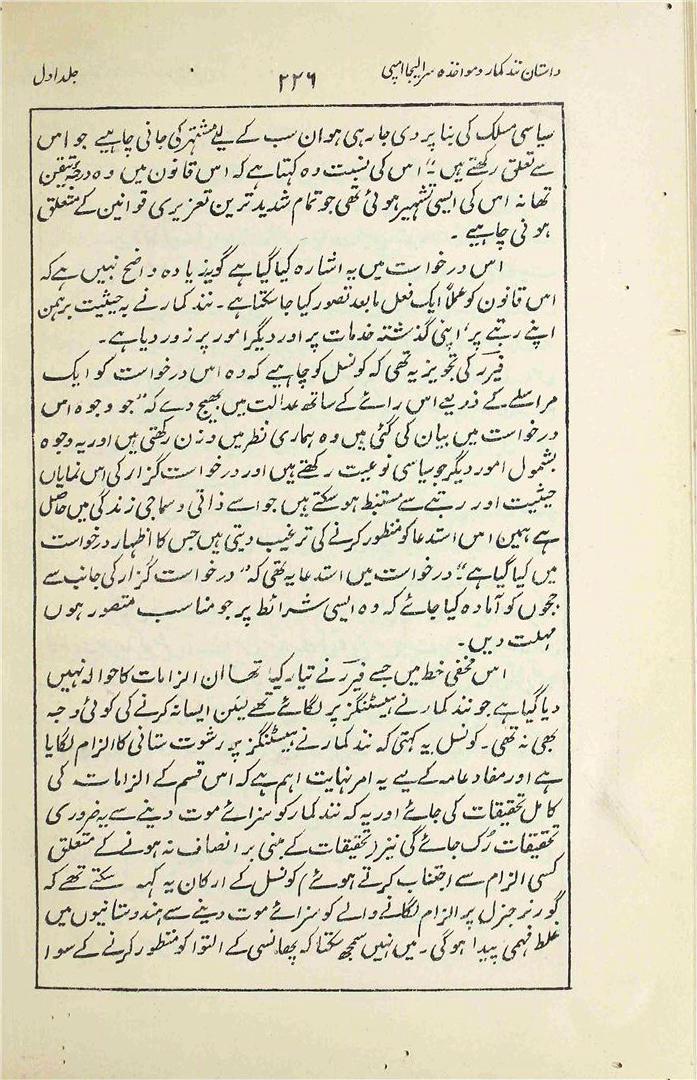 داستان نند کمار و مواخذہ سر الیجا امپی ۲۲۶ جلد اول
سیاسی مسلک کی بنا پر دی جا رہی ہو ان سب کے لیے مشتہر کی جانی چاہیے جو اس
سے تعلق رکھتے ہیں۔" اس کی نسبت وہ کہتا ہے کہ اس قانون میں وہ درجۂ تیقن
تھا نہ اس کی ایسی تشہیر ہوئی تھی جو تمام شدید ترین تعزیری قوانین کے متعلق
ہونی چاہیے۔
اس درخواست میں یہ اشارہ کیا گیا ہے گو زیادہ واضح نہیں ہے کہ
اس قانون کو عملاً ایک فعل مابعد تصور کیا جا سکتا ہے۔ نند کمار نے بہ حیثیت برہمن
اپنے رتبے پر، اپنی گذشتہ خدمات پر اور دیگر امور پر زور دیا ہے۔
فیرر کی تجویز یہ تھی کہ کونسل کو چاہیے کہ وہ اس درخواست کو ایک
مراسلے کے ذریعے اس رائے کے ساتھ عدالت میں بھیج دے کہ "جو وجوہ اس
درخواست میں بیان کی گئی ہیں وہ ہماری نظر میں وزن رکھتی ہیں اور یہ وجوہ
بشمول امور دیگر جو سیاسی نوعیت رکھتے ہیں اور درخواست گزار کی اس نمایاں
حیثیت اور رتبے سے مستنبط ہو سکتے ہیں جو اسے ذاتی و سماجی زندگی میں حاصل
ہے ہمیں اس استدعا کو منظور کرنے کی ترغیب دیتی ہیں جس کا اظہار درخواست
میں کیا گیا ہے"۔ درخواست میں استدعا یہ تھی کہ "درخواست گزار کی جانب سے
ججوں کو آمادہ کیا جائے کہ وہ ایسی شرائط پر جو مناسب متصور ہوں
مہلت دیں۔
اس مخفی خط میں جسے فیرر نے تیار کیا تھا ان الزامات کا حوالہ نہیں
دیا گیا ہے جو نند کمار نے ہیسٹنگز پر لگائے تھے لیکن ایسا نہ کرنے کی کوئی وجہ
بھی نہ تھی۔ کونسل یہ کہتی کہ نند کمار نے ہیسٹنگز پر رشوت ستانی کا الزام لگایا
ہے اور مفاد عامہ کے لیے یہ امر نہایت اہم ہے کہ اس قسم کے الزامات کی
کامل تحقیقات کی جائے اور یہ کہ نند کمار کو سزائے موت دینے سے یہ ضروری
تحقیقات رک جائے گی نیز (تحقیقات کے مبنی بر انصاف نہ ہونے کے متعلق
کسی الزام سے اجتناب کرتے ہوئے) کونسل کے ارکان یہ کہہ سکتے تھے کہ
گورنر جنرل پر الزام لگانے والے کو سزائے موت دینے سے ہندوستانیوں میں
غلط فہمی پیدا ہوگی۔ میں نہیں سمجھ سکتا کہ پھانسی کے التوا کو منظور کرنے کے سوا